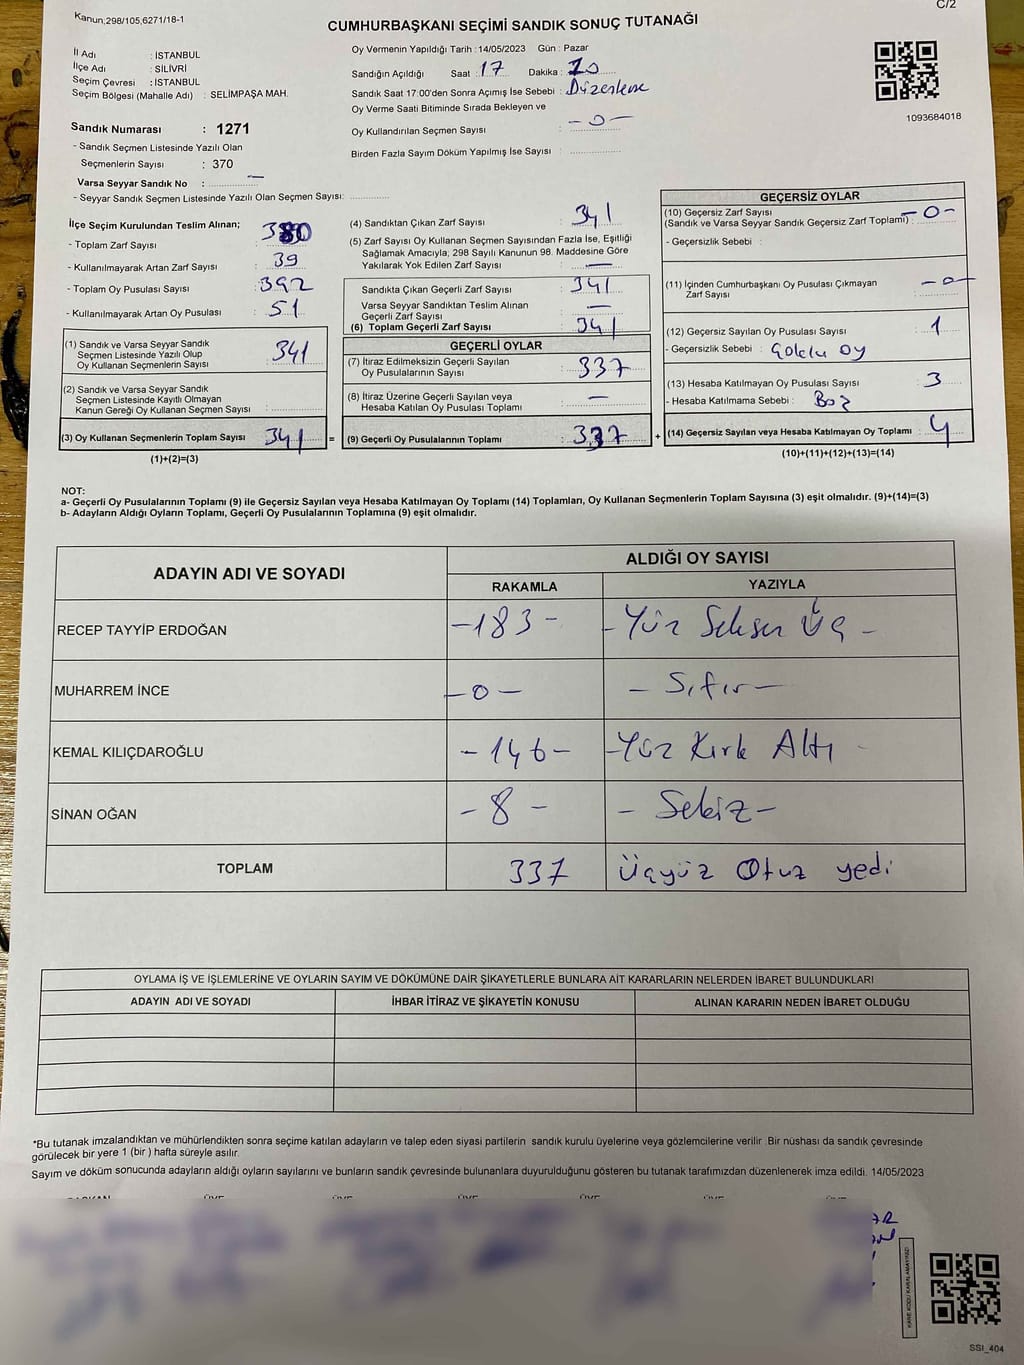 Kanun;298/105,6271/18-1
C/2
CUMHURBAŞKANI SEÇİMİ SANDIK SONUÇ TUTANAĞI
İl Adı : İSTANBUL
İlçe Adı : SİLİVRİ
Seçim Çevresi : İSTANBUL
Seçim Bölgesi (Mahalle Adı) : SELİMPAŞA MAH.
Sandık Numarası : 1271
- Sandık Seçmen Listesinde Yazılı Olan
Seçmenlerin Sayısı : 370
Varsa Seyyar Sandık No : —
- Seyyar Sandık Seçmen Listesinde Yazılı Olan Seçmen Sayısı:
Oy Vermenin Yapıldığı Tarih : 14/05/2023 Gün : Pazar
Sandığın Açıldığı Saat : 17 Dakika : 20
Sandık Saat 17:00'den Sonra Açımış İse Sebebi : Düzenleme
Oy Verme Saati Bitiminde Sırada Bekleyen ve
Oy Kullandırılan Seçmen Sayısı : -0-
Birden Fazla Sayım Döküm Yapılmış İse Sayısı :
1093684018
İlçe Seçim Kurulundan Teslim Alınan;
- Toplam Zarf Sayısı : 380
- Kullanılmayarak Artan Zarf Sayısı : 39
- Toplam Oy Pusulası Sayısı : 392
- Kullanılmayarak Artan Oy Pusulası : 51
(1) Sandık ve Varsa Seyyar Sandık
Seçmen Listesinde Yazılı Olup
Oy Kullanan Seçmenlerin Sayısı : 341
(2) Sandık ve Varsa Seyyar Sandık
Seçmen Listesinde Kayıtlı Olmayan
Kanun Gereği Oy Kullanan Seçmen Sayısı :
(3) Oy Kullanan Seçmenlerin Toplam Sayısı : 341 =
(1)+(2)=(3)
(4) Sandıktan Çıkan Zarf Sayısı : 341
(5) Zarf Sayısı Oy Kullanan Seçmen Sayısından Fazla İse, Eşitliği
Sağlamak Amacıyla, 298 Sayılı Kanunun 98. Maddesine Göre
Yakılarak Yok Edilen Zarf Sayısı : —
Sandıkta Çıkan Geçerli Zarf Sayısı : 341
Varsa Seyyar Sandıktan Teslim Alınan
Geçerli Zarf Sayısı : —
(6) Toplam Geçerli Zarf Sayısı : 341
GEÇERLİ OYLAR
(7) İtiraz Edilmeksizin Geçerli Sayılan
Oy Pusulalarının Sayısı : 337
(8) İtiraz Üzerine Geçerli Sayılan veya
Hesaba Katılan Oy Pusulası Toplamı : —
(9) Geçerli Oy Pusulalarının Toplamı : 337 +
GEÇERSİZ OYLAR
(10) Geçersiz Zarf Sayısı
(Sandık ve Varsa Seyyar Sandık Geçersiz Zarf Toplamı) : -0-
- Geçersizlik Sebebi :
(11) İçinden Cumhurbaşkanı Oy Pusulası Çıkmayan
Zarf Sayısı : -0-
(12) Geçersiz Sayılan Oy Pusulası Sayısı : 1
- Geçersizlik Sebebi : Çoklu Oy
(13) Hesaba Katılmayan Oy Pusulası Sayısı : 3
- Hesaba Katılmama Sebebi : Boş
(14) Geçersiz Sayılan veya Hesaba Katılmayan Oy Toplamı : 4
(10)+(11)+(12)+(13)=(14)
NOT:
a- Geçerli Oy Pusulalarının Toplamı (9) ile Geçersiz Sayılan veya Hesaba Katılmayan Oy Toplamı (14) Toplamları, Oy Kullanan Seçmenlerin Toplam Sayısına (3) eşit olmalıdır. (9)+(14)=(3)
b- Adayların Aldığı Oyların Toplamı, Geçerli Oy Pusulalarının Toplamına (9) eşit olmalıdır.
ADAYIN ADI VE SOYADI
ALDIĞI OY SAYISI
RAKAMLA YAZIYLA
RECEP TAYYİP ERDOĞAN -183- -Yüz Seksen Üç-
MUHARREM İNCE -0- -Sıfır-
KEMAL KILIÇDAROĞLU -146- -Yüz Kırk Altı-
SİNAN OĞAN -8- -Sekiz-
TOPLAM 337 Üçyüz Otuz yedi
OYLAMA İŞ VE İŞLEMLERİNE VE OYLARIN SAYIM VE DÖKÜMÜNE DAİR ŞİKAYETLERLE BUNLARA AİT KARARLARIN NELERDEN İBARET BULUNDUKLARI
ADAYIN ADI VE SOYADI İHBAR İTİRAZ VE ŞİKAYETİN KONUSU ALINAN KARARIN NEDEN İBARET OLDUĞU
*Bu tutanak imzalandıktan ve mühürlendikten sonra seçime katılan adayların ve talep eden siyasi partilerin sandık kurulu üyelerine veya gözlemcilerine verilir .Bir nüshası da sandık çevresinde
görülecek bir yere 1 (bir ) hafta süreyle asılır.
Sayım ve döküm sonucunda adayların aldığı oyların sayılarını ve bunların sandık çevresinde bulunanlara duyurulduğunu gösteren bu tutanak tarafımızdan düzenlenerek imza edildi. 14/05/2023
BAŞKAN ÜYE ÜYE ÜYE ÜYE ÜYE
KARE KODU KARALAMAYINIZ!
SSI_404